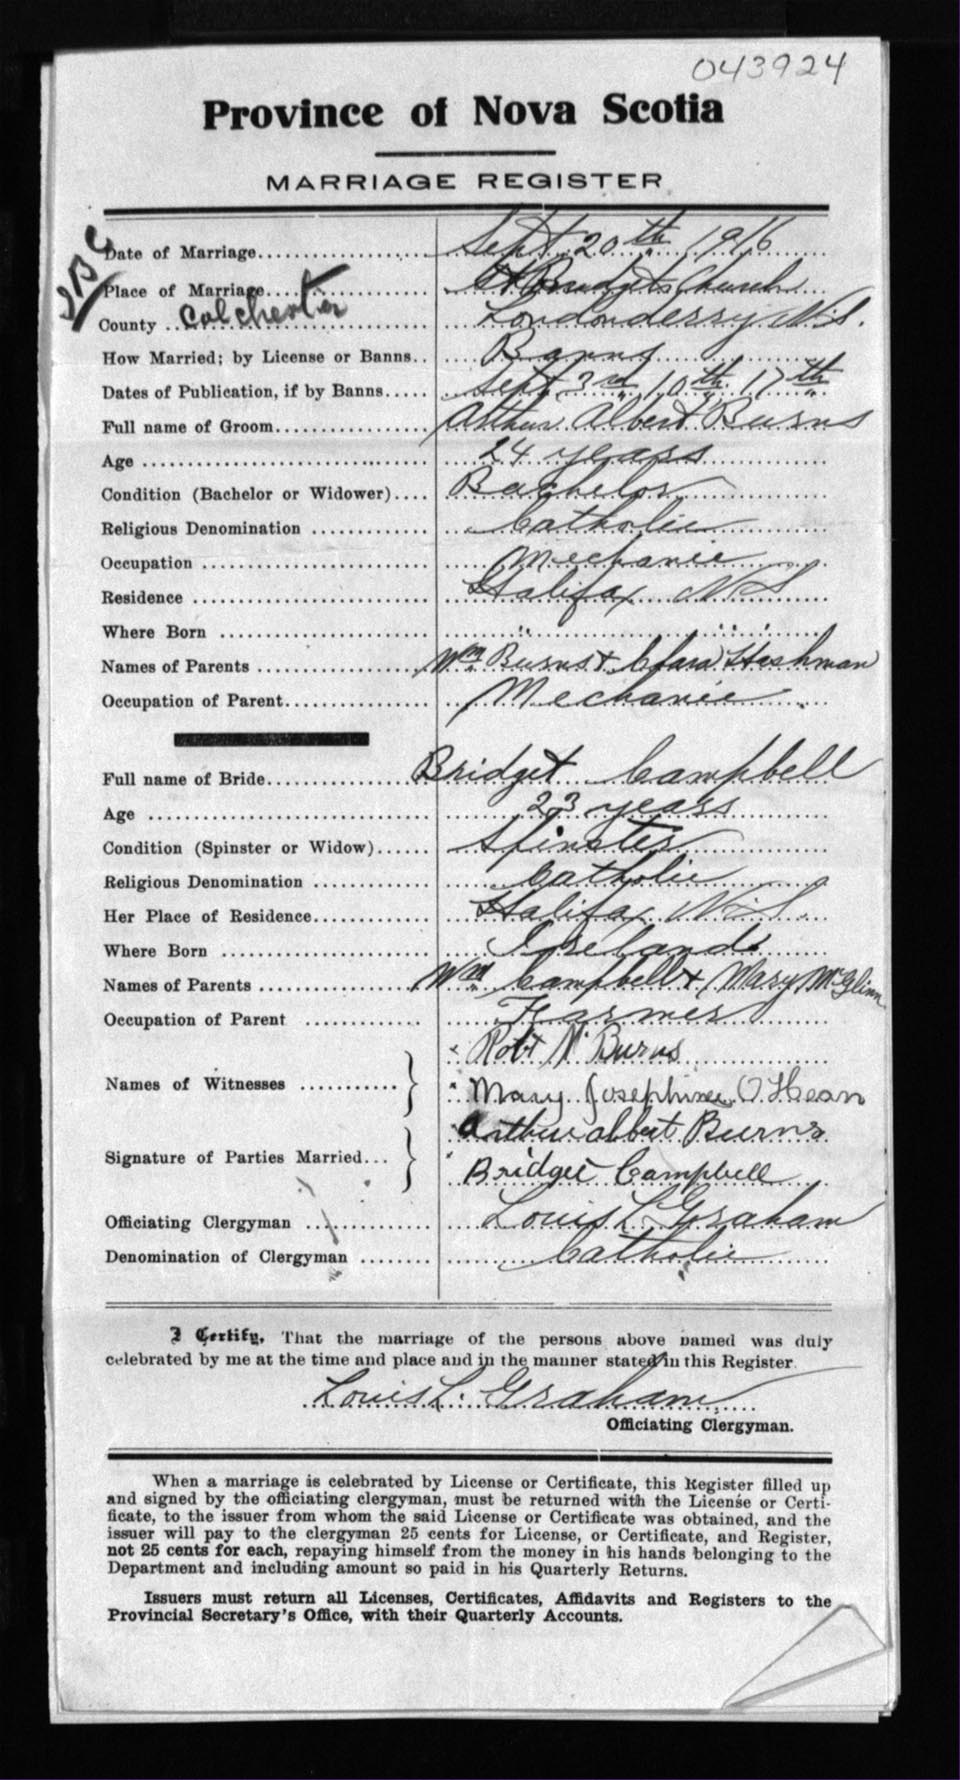 043924
Province of Nova Scotia
MARRIAGE REGISTER
Date of Marriage.................... Sept 20th 1916
Place of Marriage.................... St Bridgets Church
County .. Colchester .................... Londonderry N.S.
How Married; by License or Banns.. Banns
Dates of Publication, if by Banns..... Sept 3rd, 10th, 17th
Full name of Groom.................. Arthur Albert Burns
Age .................................. 24 years
Condition (Bachelor or Widower).... Bachelor
Religious Denomination ............. Catholic
Occupation ......................... Mechanic
Residence .......................... Halifax N S
Where Born ........................ " "
Names of Parents .................. Wm Burns + Clara Hashman
Occupation of Parent................ Mechanic
Full name of Bride................... Bridget Campbell
Age .................................. 23 years
Condition (Spinster or Widow)...... Spinster
Religious Denomination ............. Catholic
Her Place of Residence.............. Halifax N.S.
Where Born ........................ Ireland
Names of Parents .................. Wm Campbell + Mary McGlinn
Occupation of Parent .............. Farmer
Names of Witnesses ........... } Robt N. Burns
Mary Josephine O'Hearn
Signature of Parties Married... } Arthur albert Burns
Bridget Campbell
Officiating Clergyman ............. Louis L. Graham
Denomination of Clergyman ........ Catholic
I Certify, That the marriage of the persons above named was duly
celebrated by me at the time and place and in the manner stated in this Register.
Louis L. Graham
Officiating Clergyman.
When a marriage is celebrated by License or Certificate, this Register filled up
and signed by the officiating clergyman, must be returned with the License or Certi-
ficate, to the issuer from whom the said License or Certificate was obtained, and the
issuer will pay to the clergyman 25 cents for License, or Certificate, and Register,
not 25 cents for each, repaying himself from the money in his hands belonging to the
Department and including amount so paid in his Quarterly Returns.
Issuers must return all Licenses, Certificates, Affidavits and Registers to the
Provincial Secretary's Office, with their Quarterly Accounts.